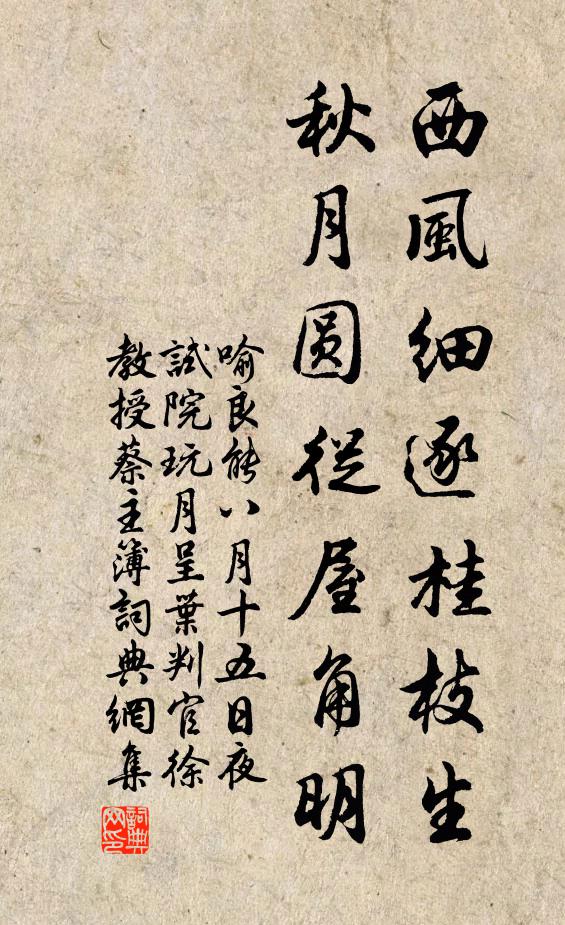 西風細逐桂枝生
秋月圓從屋角明
喻良能八月十五日夜
試院玩月呈葉判官徐
教授蔡主簿詞典網集
詞典
网印